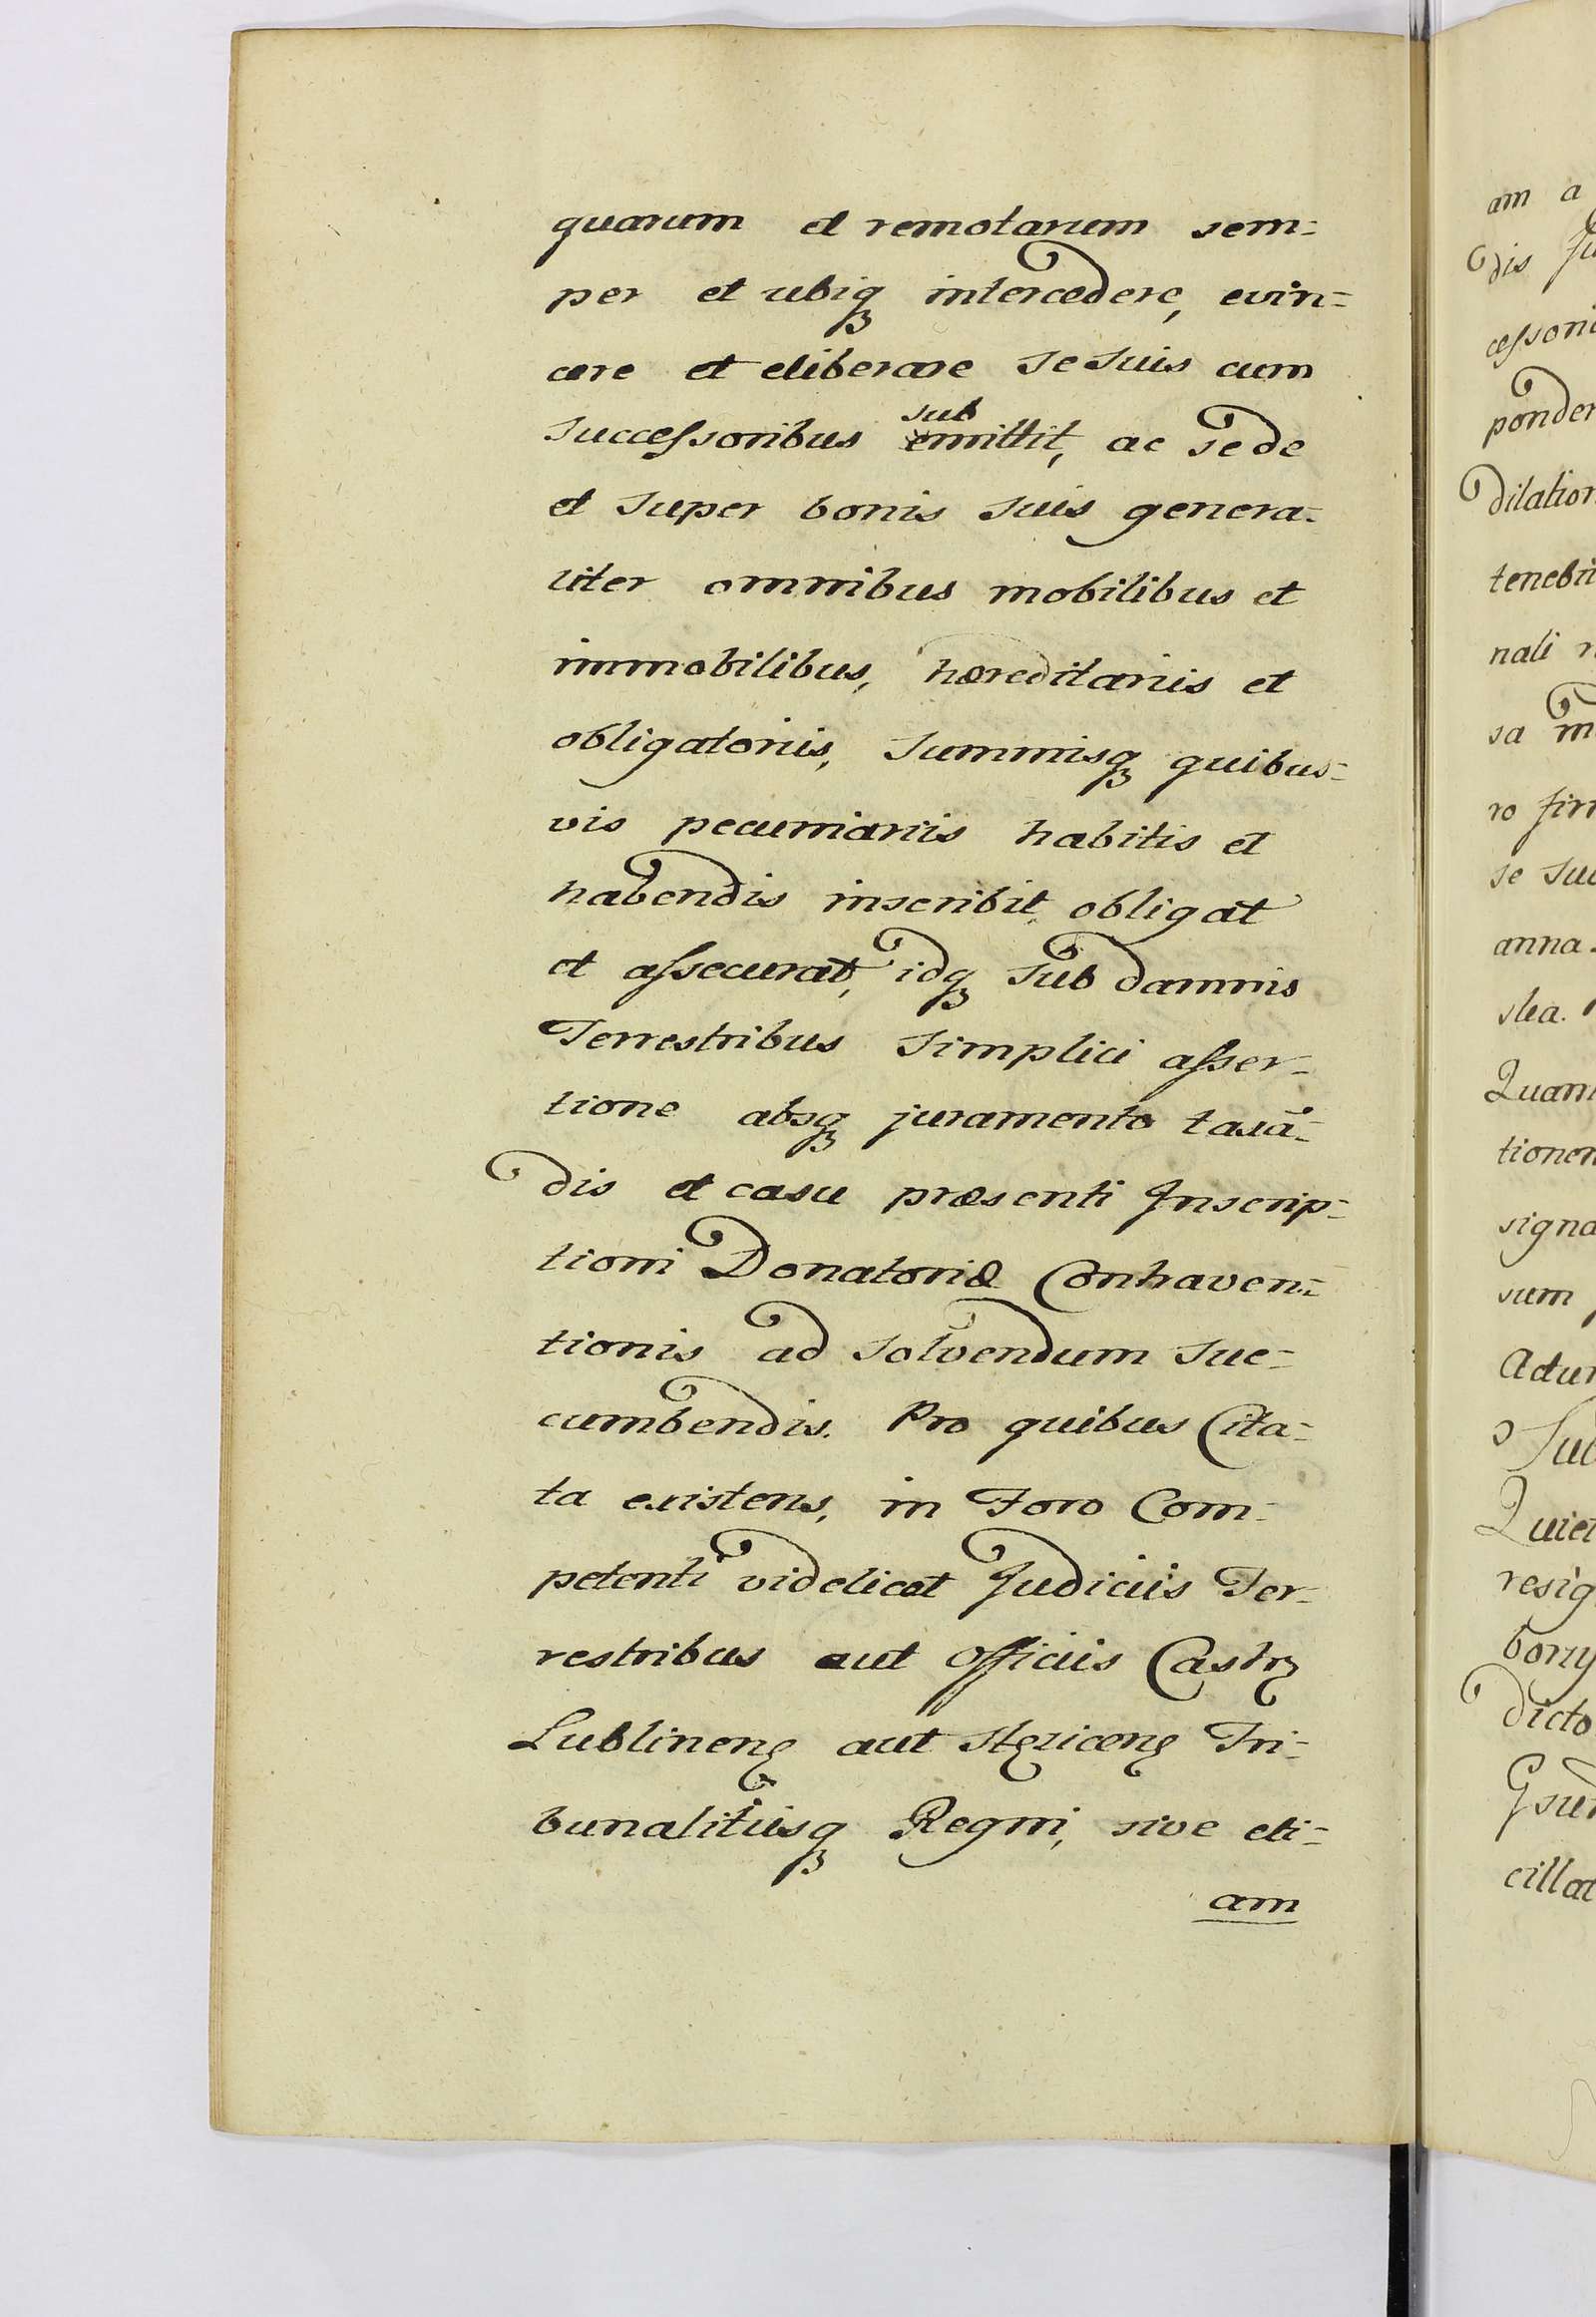 quarum et remotarum sem=
per et ubiqꝫ intercedere, evin=
cere et eliberare se suis cum
successoribus submittit, ac se de
et super bonis suis genera=
liter omnibus mobilibus et
immobilibus, hæreditariis et
obligatoriis, summisqꝫ quibus=
vis pecuniariis habitis et
habendis inscribit obligat
et assecurat, idqꝫ sub damnis
Terrestribus simplici asser=
tione absqꝫ juramento taxā=
dis et casu præsenti Inscrip=
tioni Donatoriæ Contraven=
tionis ad solvendum suc=
cumbendis. Pro quibus Cita=
ta existens, in Foro Com=
petenti videlicet Judiciis Ter=
restribus aut Officiis Castrꝫ
Lublinenꝫ aut Stęzicenꝫ Tri=
bunalitiisqꝫ Regni, sive eti=
am
am a
dis Ju
cessori
ponder
dilation
tenebit
nali
sa m
ro fir
se suc
anna
stea.
Quam
tionem
signa
sum
Actu
Sub
Quiet
resig
borzy
dicto
cillat